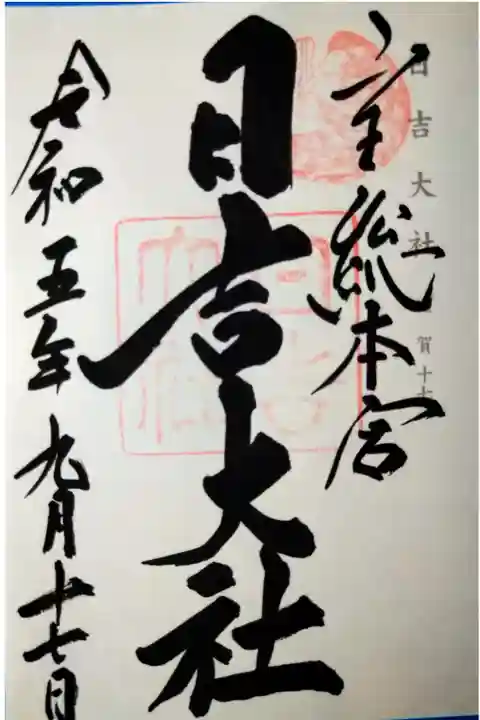 日吉大社
賀十七
全総本宮
日吉大社
令和五年九月十七日